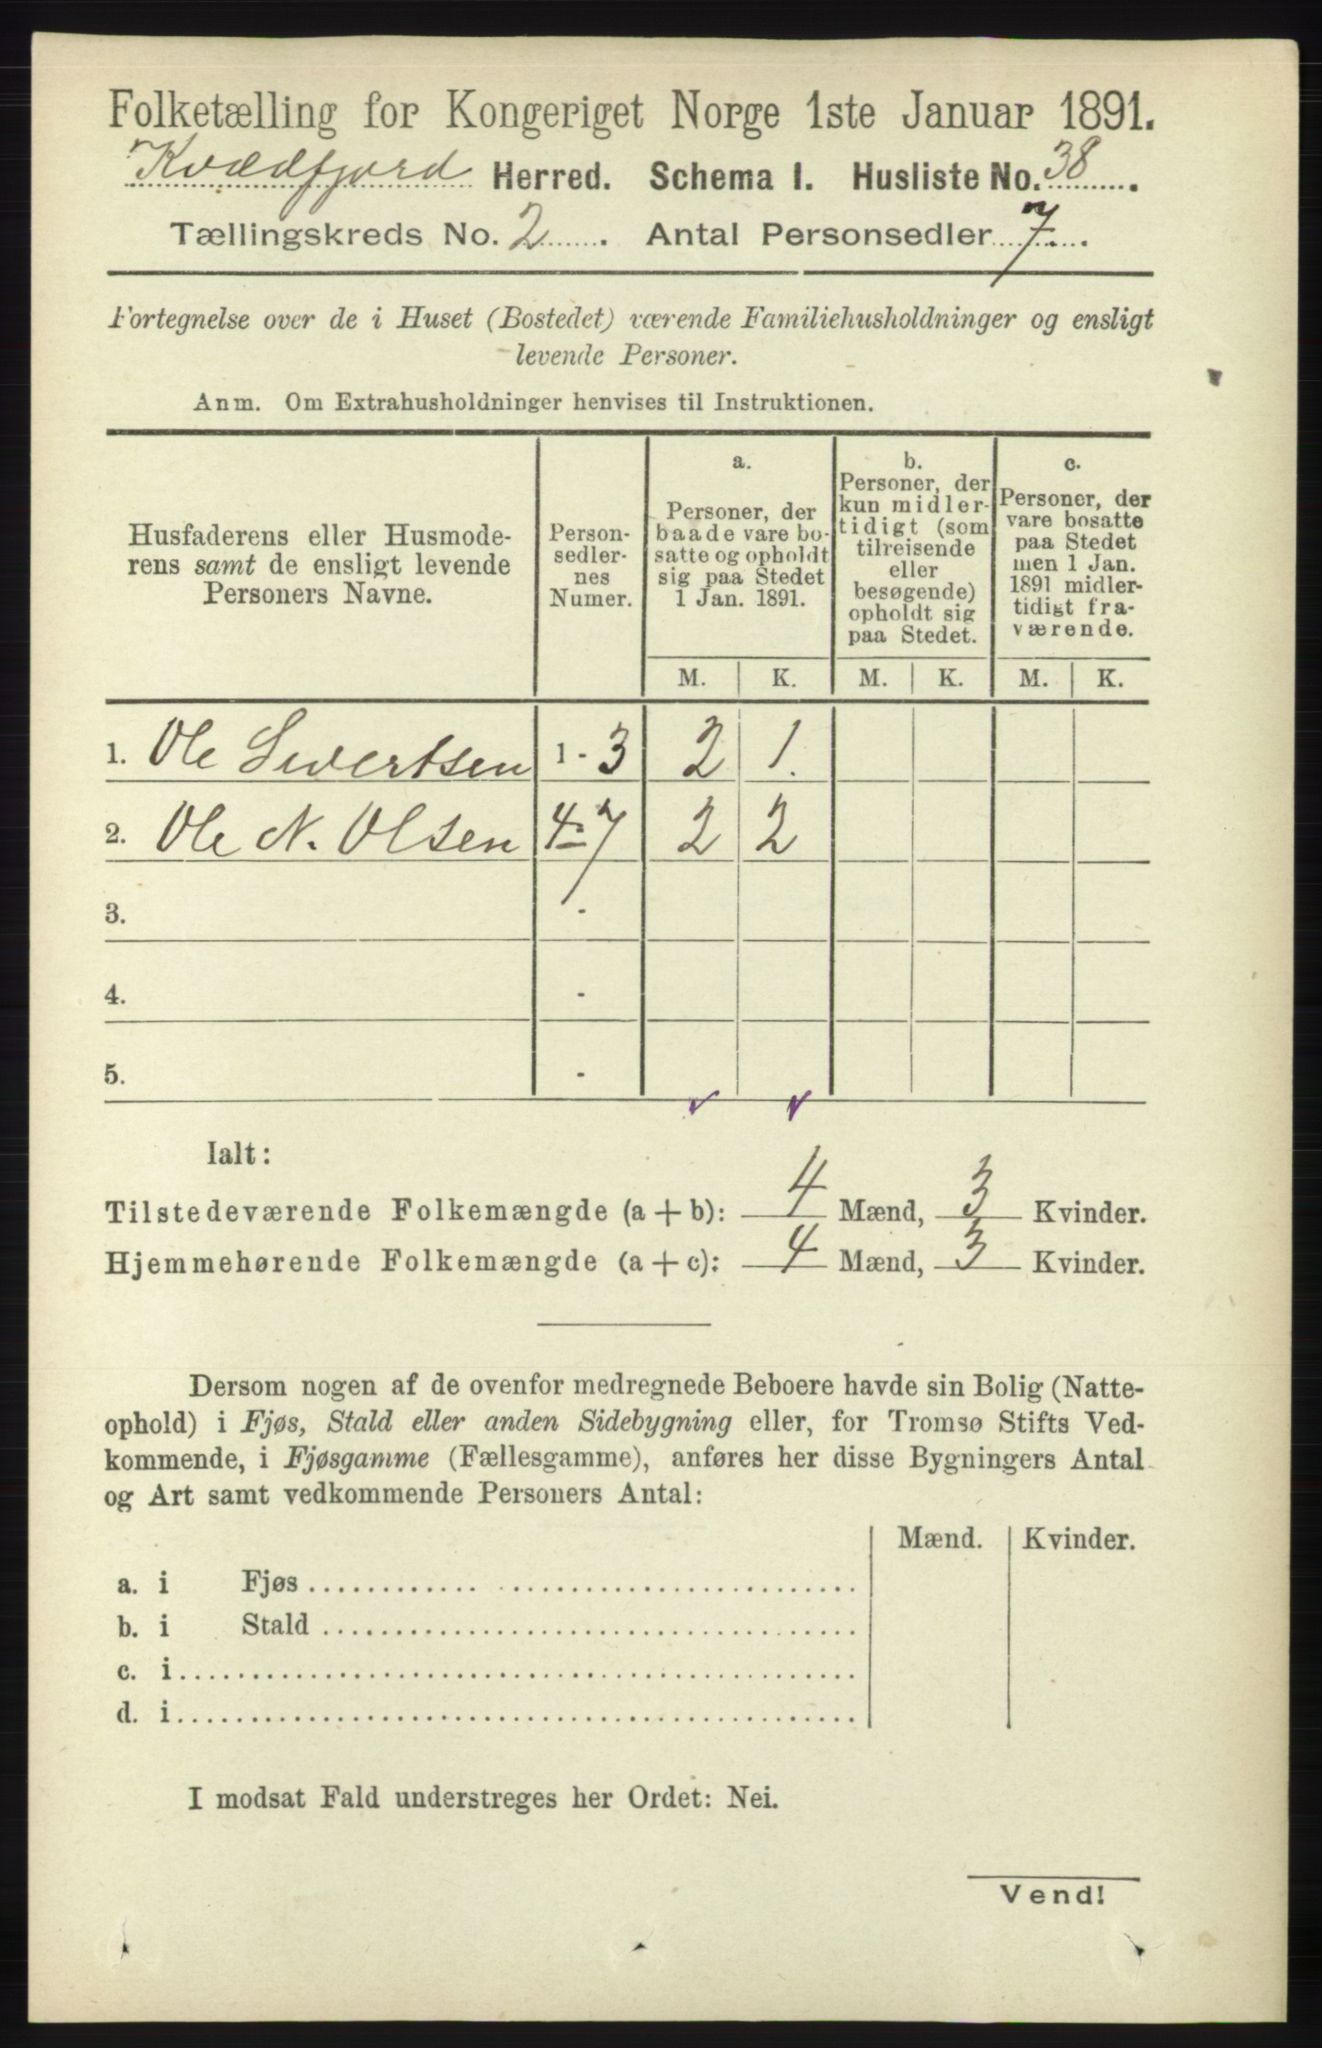 Folketælling for Kongeriget Norge 1ste Januar 1891.
Kvædfjord Herred. Schema I. Husliste No. 38.
Tællingskreds No. 2. Antal Personsedler 7.
Fortegnelse over de i Huset (Bostedet) værende Familiehusholdninger og ensligt
levende Personer.
Anm. Om Extrahusholdninger henvises til Instruktionen.
Husfaderens eller Husmode-
rens samt de ensligt levende
Personers Navne.
Person-
sedler-
nes
Numer.
a.
Personer, der
baade vare bo-
satte og opholdt
sig paa Stedet
1 Jan. 1891.
b.
Personer, der
kun midler-
tidigt (som
tilreisende
eller
besøgende)
opholdt sig
paa Stedet.
c.
Personer, der
vare bosatte
paa Stedet
men 1 Jan.
1891 midler-
tidigt fra-
værende.
M. K. M. K. M. K.
1. Ole Sivertsen 1-3 2 1.
2. Ole N. Olsen 4-7 2 2
3. -
4. -
5. -
Ialt:
Tilstedeværende Folkemængde (a + b): 4 Mænd, 3 Kvinder.
Hjemmehørende Folkemængde (a + c): 4 Mænd, 3 Kvinder.
Dersom nogen af de ovenfor medregnede Beboere havde sin Bolig (Natte-
ophold) i Fjøs, Stald eller anden Sidebygning eller, for Tromsø Stifts Ved-
kommende, i Fjøsgamme (Fællesgamme), anføres her disse Bygningers Antal
og Art samt vedkommende Personers Antal:
Mænd. Kvinder.
a. i Fjøs
b. i Stald
c. i
d. i
I modsat Fald understreges her Ordet: Nei.
Vend!